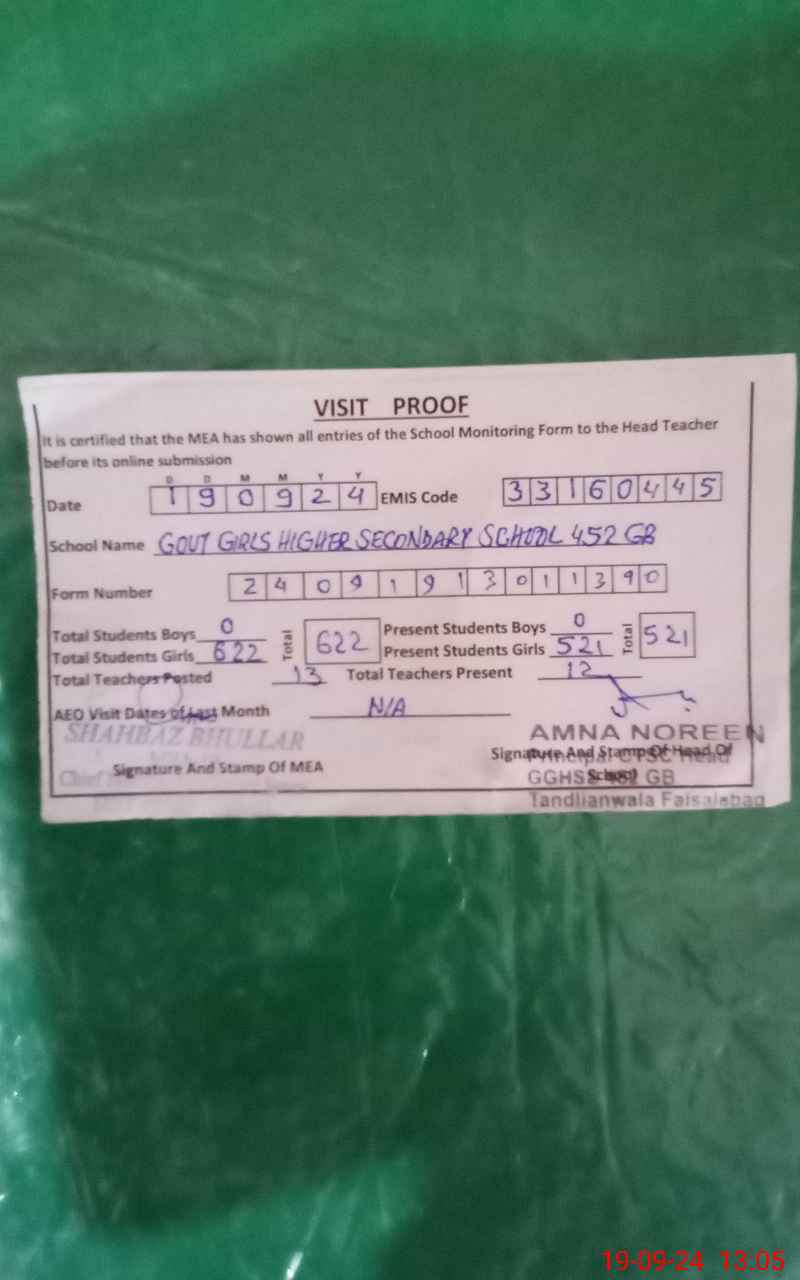 VISIT PROOF
It is certified that the MEA has shown all entries of the School Monitoring Form to the Head Teacher
before its online submission
D D M M Y Y
Date 1 9 0 9 2 4 EMIS Code 3 3 1 6 0 4 4 5
School Name GOVT GIRLS HIGHER SECONDARY SCHOOL 452 GB
Form Number 2 4 0 9 1 9 1 3 0 1 1 3 9 0
Total Students Boys 0 Total 622 Present Students Boys 0 Total 521
Total Students Girls 622 Present Students Girls 521
Total Teachers Posted 13 Total Teachers Present 12
AEO Visit Dates of Last Month N/A
SHAHBAZ BHULLAR
AMNA NOREEN
Signature And Stamp Of MEA
Signature And Stamp Of Head Of
School
Principal CTSC Head
GGHSS 452 GB
Tandlianwala Faisalabad
19-09-24 13:05